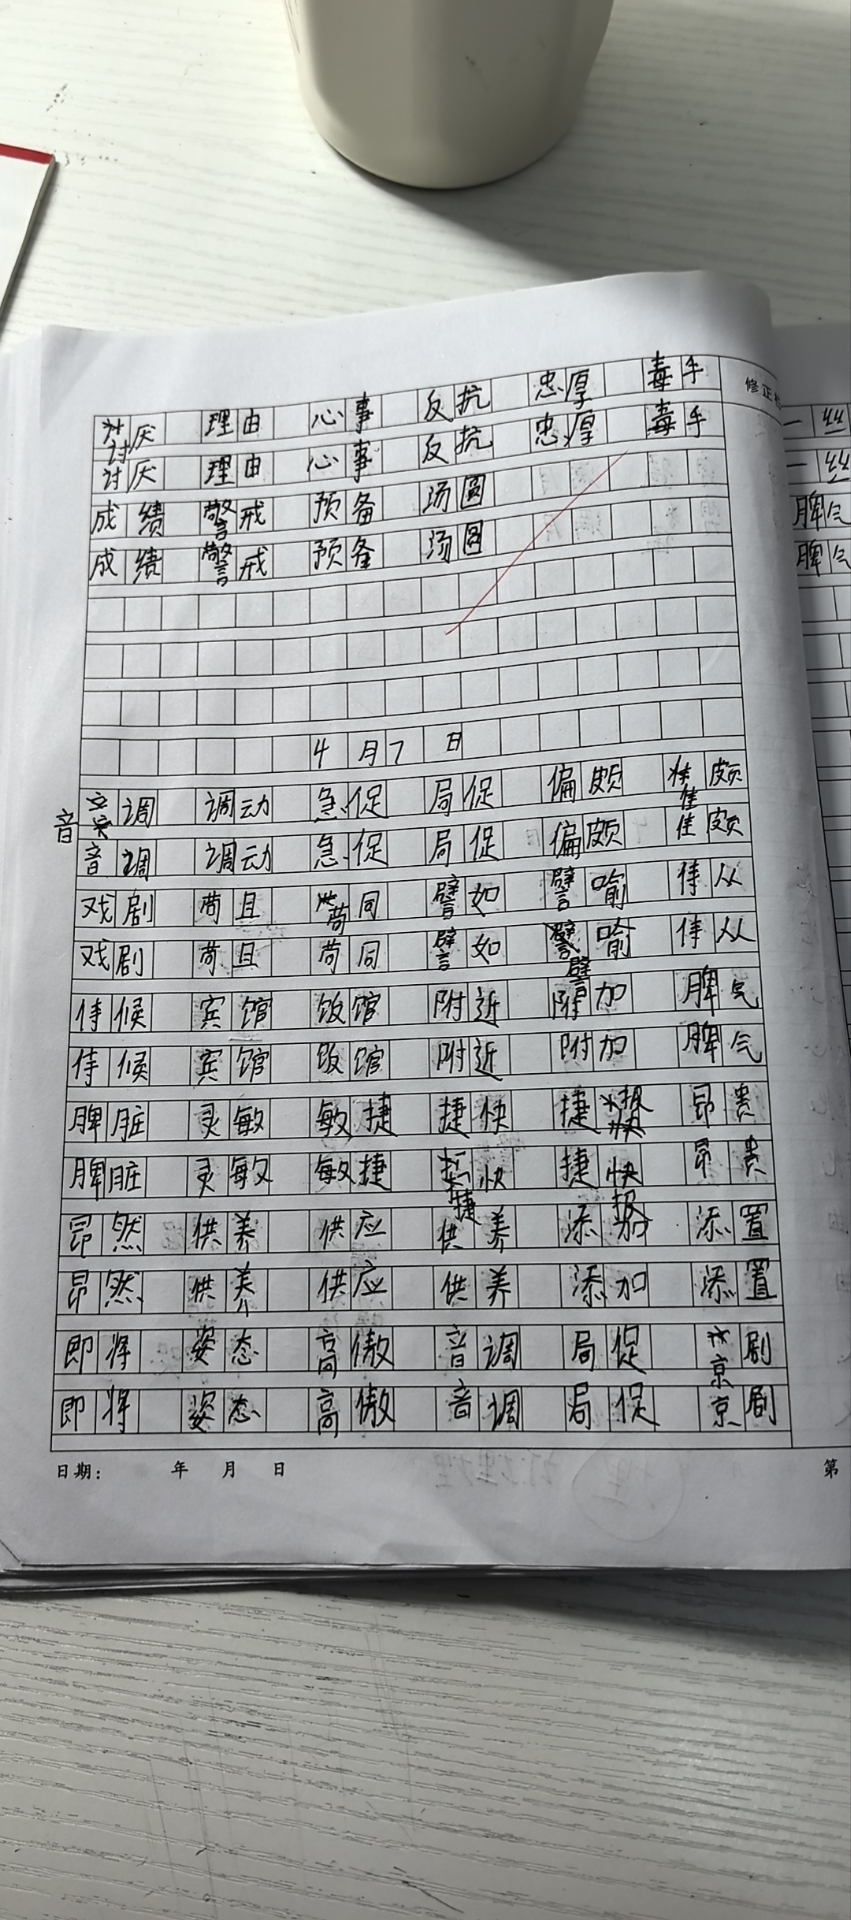 讨厌 理由 心事 反抗 忠厚 毒手
讨厌 理由 心事 反抗 忠厚 毒手
成绩 警戒 预备 汤圆
成绩 警戒 预备 汤圆
4月7日
音调 调动 急促 局促 偏颇 佳颇
音调 调动 急促 局促 偏颇 佳颇
戏剧 苟且 苟同 譬如 譬喻 侍从
戏剧 苟且 苟同 譬如 譬喻 侍从
侍候 宾馆 饭馆 附近 附加 脾气
侍候 宾馆 饭馆 附近 附加 脾气
脾脏 灵敏 敏捷 捷快 捷 昂贵
脾脏 灵敏 敏捷 捷快 捷 昂贵
昂然 供养 供应 供养 添加 添置
昂然 供养 供应 供养 添加 添置
即将 姿态 高傲 音调 局促 京剧
即将 姿态 高傲 音调 局促 京剧
日期： 年 月 日
第
修正
一 丝
一 丝
脾气
脾气